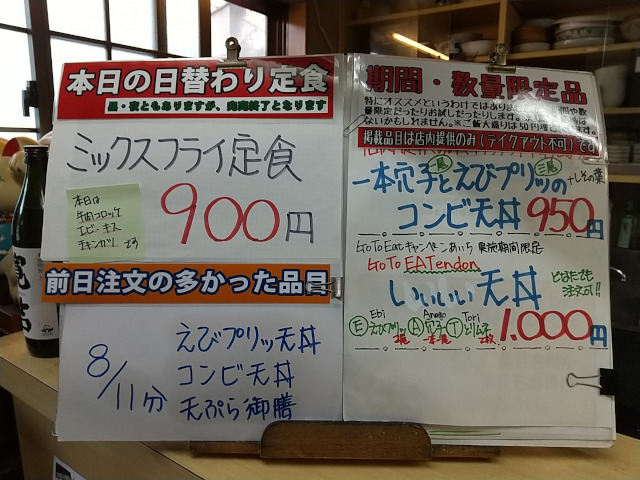 本日の日替わり定食
昼・夜ともありますが、完売終了となります
ミックスフライ定食
900円
本日は
牛肉コロッケ
エビ・キス
チキンカツ です
前日注文の多かった品目
8/11分
えびプリッ天丼
コンビ天丼
天ぷら御膳
期間・数量限定品
特にオススメというわけではありま
限定だったりお試しだったりします。
ないかもしれません。※ご飯大盛りは50円増
掲載品目は店内提供のみ(テイクアウト不可)です
一本穴子とえびプリッの
二尾
+しその葉
コンビ天丼 950円
GoToEatキャンペーンあいち 実施期間限定
GoTo EATendon
いいいい天丼
どなたでも
注文可!!
Ebi Anago Tori
Ⓔえびプリッ Ⓐ穴子 Ⓣとりムネ
2尾 一本 2枚
1.000円